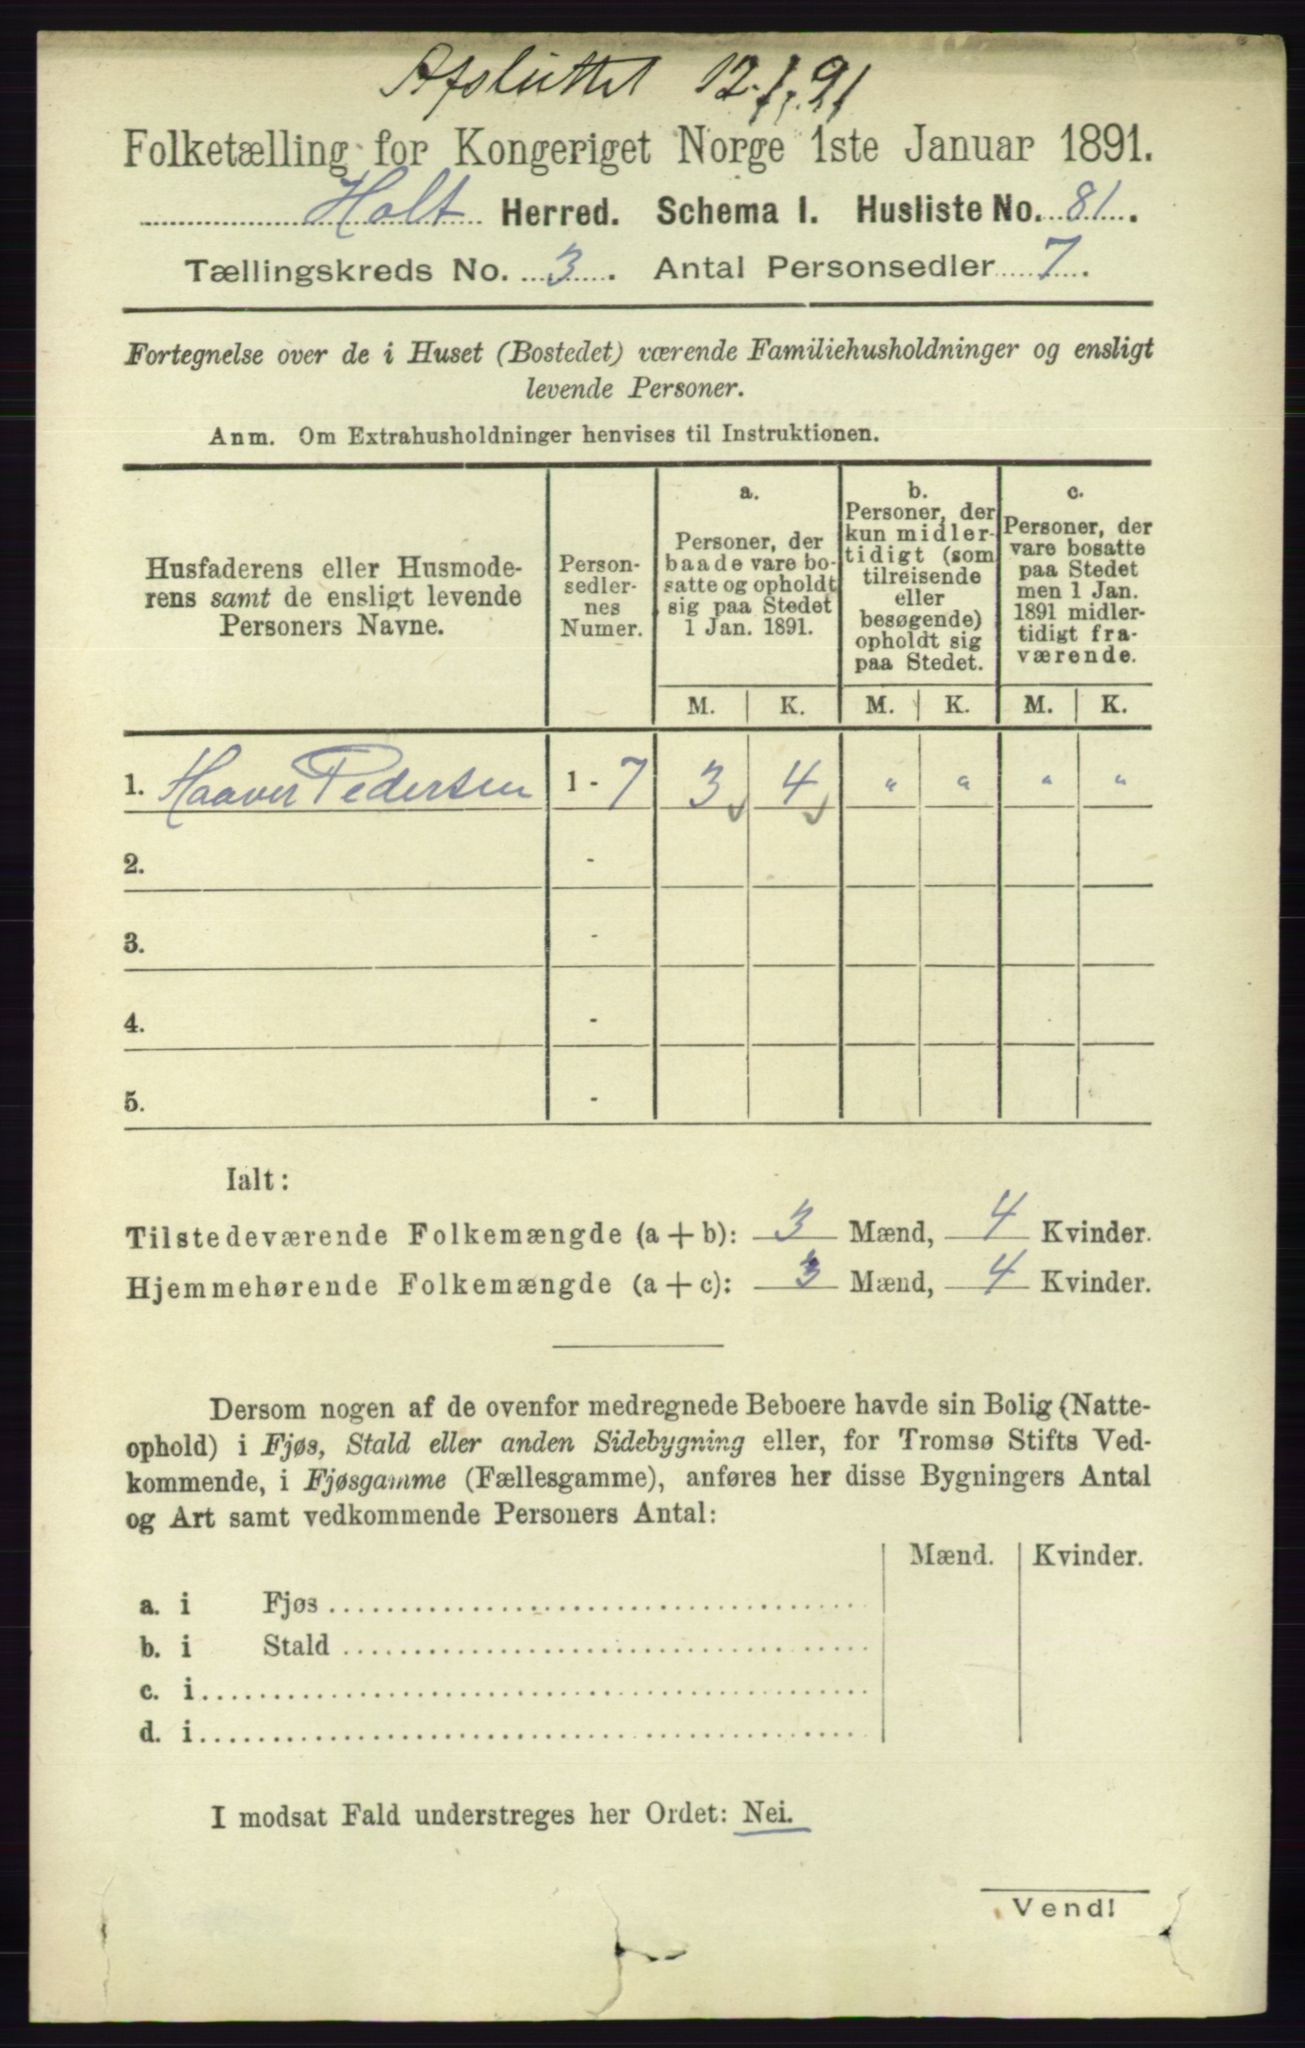 Afsluttet 12.1.91
Folketælling for Kongeriget Norge 1ste Januar 1891.
Holt Herred. Schema I. Husliste No. 81.
Tællingskreds No. 3. Antal Personsedler 7.
Fortegnelse over de i Huset (Bostedet) værende Familiehusholdninger og ensligt
levende Personer.
Anm. Om Extrahusholdninger henvises til Instruktionen.
Husfaderens eller Husmode-
rens samt de ensligt levende
Personers Navne.
Person-
sedler-
nes
Numer.
a.
Personer, der
baade vare bo-
satte og opholdt
sig paa Stedet
1 Jan. 1891.
b.
Personer, der
kun midler-
tidigt (som
tilreisende
eller
besøgende)
opholdt sig
paa Stedet.
c.
Personer, der
vare bosatte
paa Stedet
men 1 Jan.
1891 midler-
tidigt fra-
værende.
M. K. M. K. M. K.
1. Haaver Pedersen 1 - 7 3 4 " " " "
2. -
3. -
4. -
5. -
Ialt:
Tilstedeværende Folkemængde (a + b): 3 Mænd, 4 Kvinder.
Hjemmehørende Folkemængde (a + c): 3 Mænd, 4 Kvinder.
Dersom nogen af de ovenfor medregnede Beboere havde sin Bolig (Natte-
ophold) i Fjøs, Stald eller anden Sidebygning eller, for Tromsø Stifts Ved-
kommende, i Fjøsgamme (Fællesgamme), anføres her disse Bygningers Antal
og Art samt vedkommende Personers Antal:
Mænd. Kvinder.
a. i Fjøs
b. i Stald
c. i
d. i
I modsat Fald understreges her Ordet: Nei.
Vend!